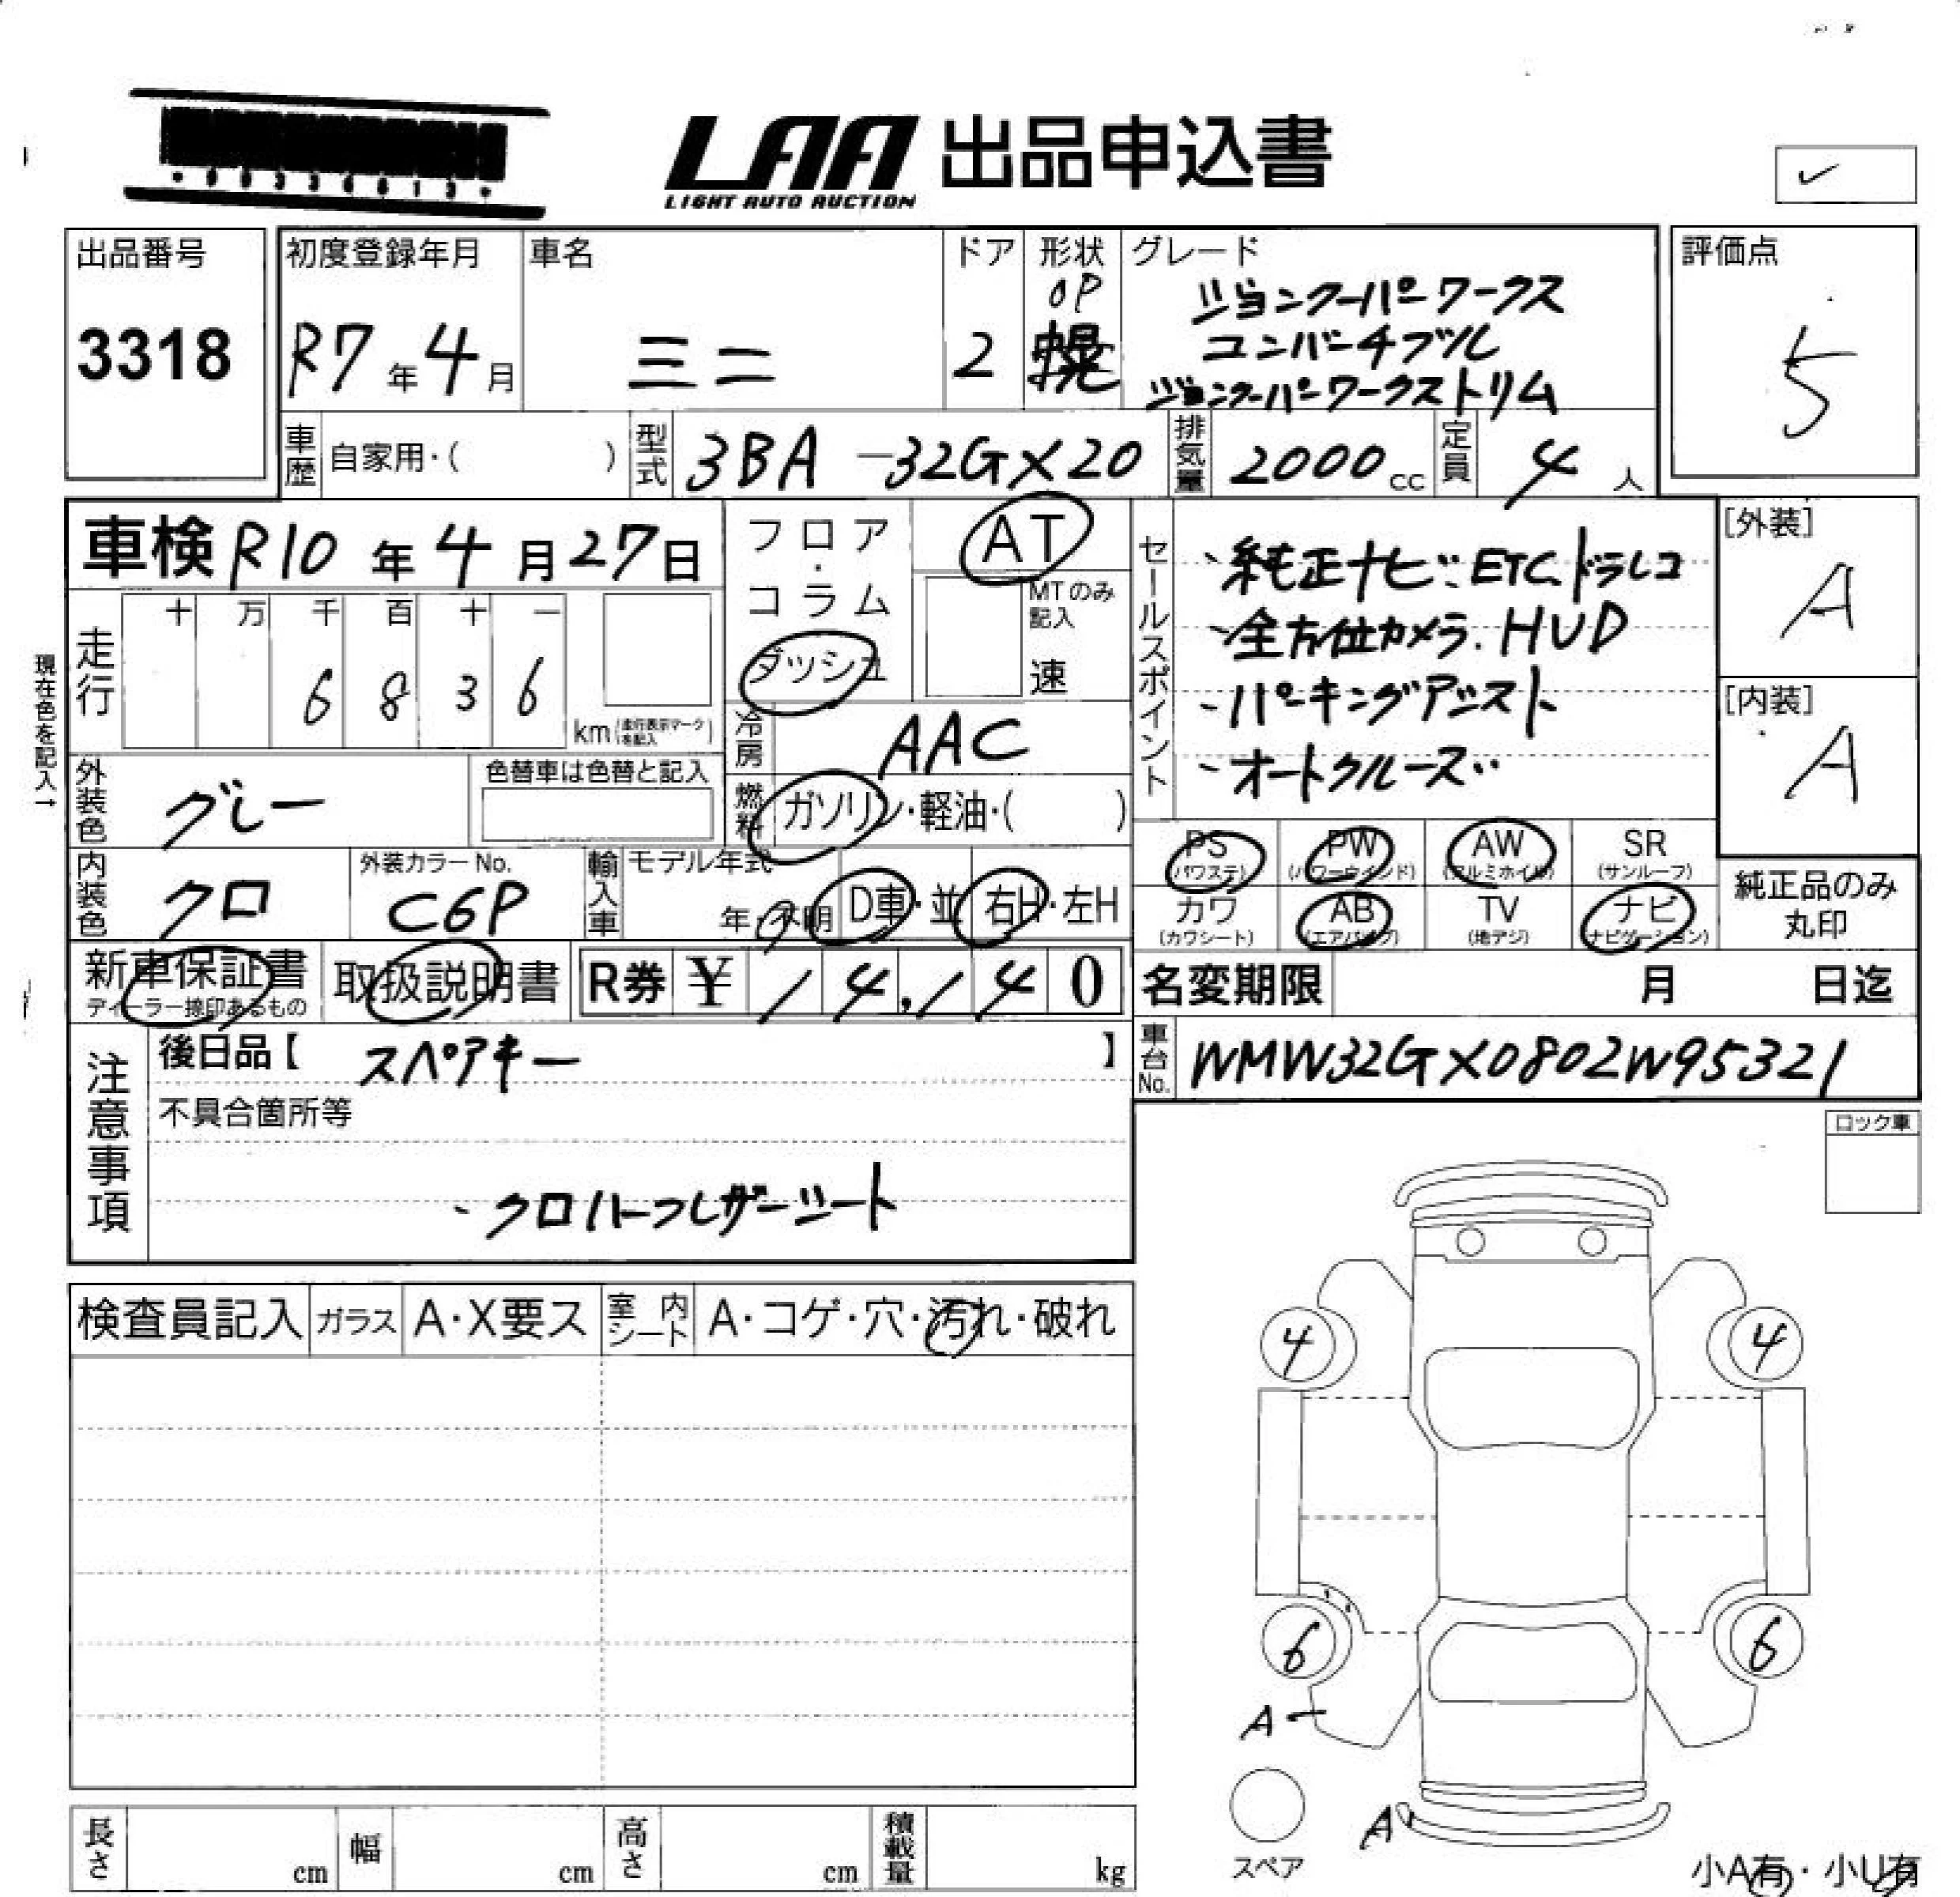 LAA 出品申込書
LIGHT AUTO AUCTION
出品番号
3318
初度登録年月
R7年4月
車名
ミニ
ドア
2
形状
OP
グレード
ジョンクーパーワークス
コンバーチブル
ジョンクーパーワークストリム
評価点
5
車歴 自家用・( )
型式 3BA-32GX20
排気量 2000cc
定員 4人
車検 R10年4月27日
フロア・コラム
ダッシュ
AT
MTのみ記入
速
セールスポイント
、純正ナビ、ETC、ドラレコ
、全方位カメラ、HUD
、パーキングアシスト
、オートクルーズ
[外装]
A
[内装]
A
現在色を記入→
走行
十 万 千 百 十 一
6 8 3 6
km(走行表示マークを記入)
冷房 AAC
外装色 グレー
色替車は色替と記入
燃料 ガソリン・軽油・( )
PS (パワステ)
PW (パワーウインド)
AW (アルミホイル)
SR (サンルーフ)
内装色 クロ
外装カラーNo.
C6P
輸入車
モデル年式
年・不明
D車・並
右H・左H
カワ (カワシート)
AB (エアバッグ)
TV (地デジ)
ナビ (ナビゲーション)
純正品のみ
丸印
新車保証書
ディーラー捺印あるもの
取扱説明書
R券 ¥ 14,140
名変期限 月 日迄
車台No. WMW32GX0802W95321
注意事項
後日品【 スペアキー 】
不具合箇所等
、クロハーフレザーシート
ロック車
検査員記入
ガラス A・X要ス
室内シート A・コゲ・穴・汚れ・破れ
4
4
6
6
A
A
スペア
長さ cm
幅 cm
高さ cm
積載量 kg
小A有・小U有